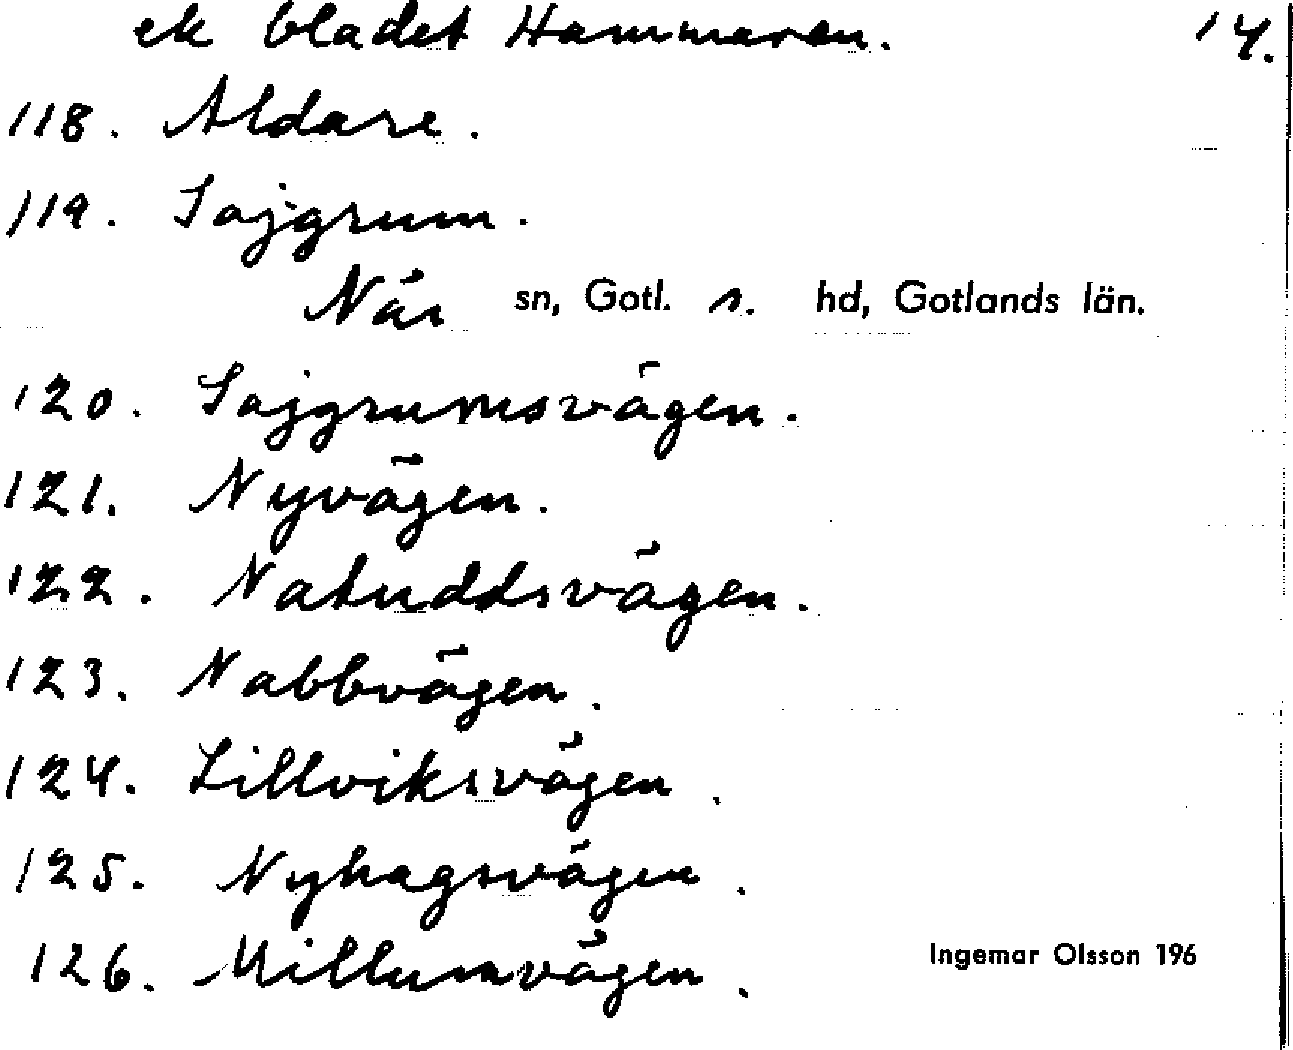 ek bladet Hammaren. 14.
118. Aldare.
119. Sajgrum.
När sn, Gotl. s. hd, Gotlands län.
120. Sajgrumsvägen.
121. Nyvägen.
122. Natuddsvägen.
123. Nabbvägen.
124. Lillviksvägen.
125. Nyhagsvägen.
126. Millumvägen.
Ingemar Olsson 196